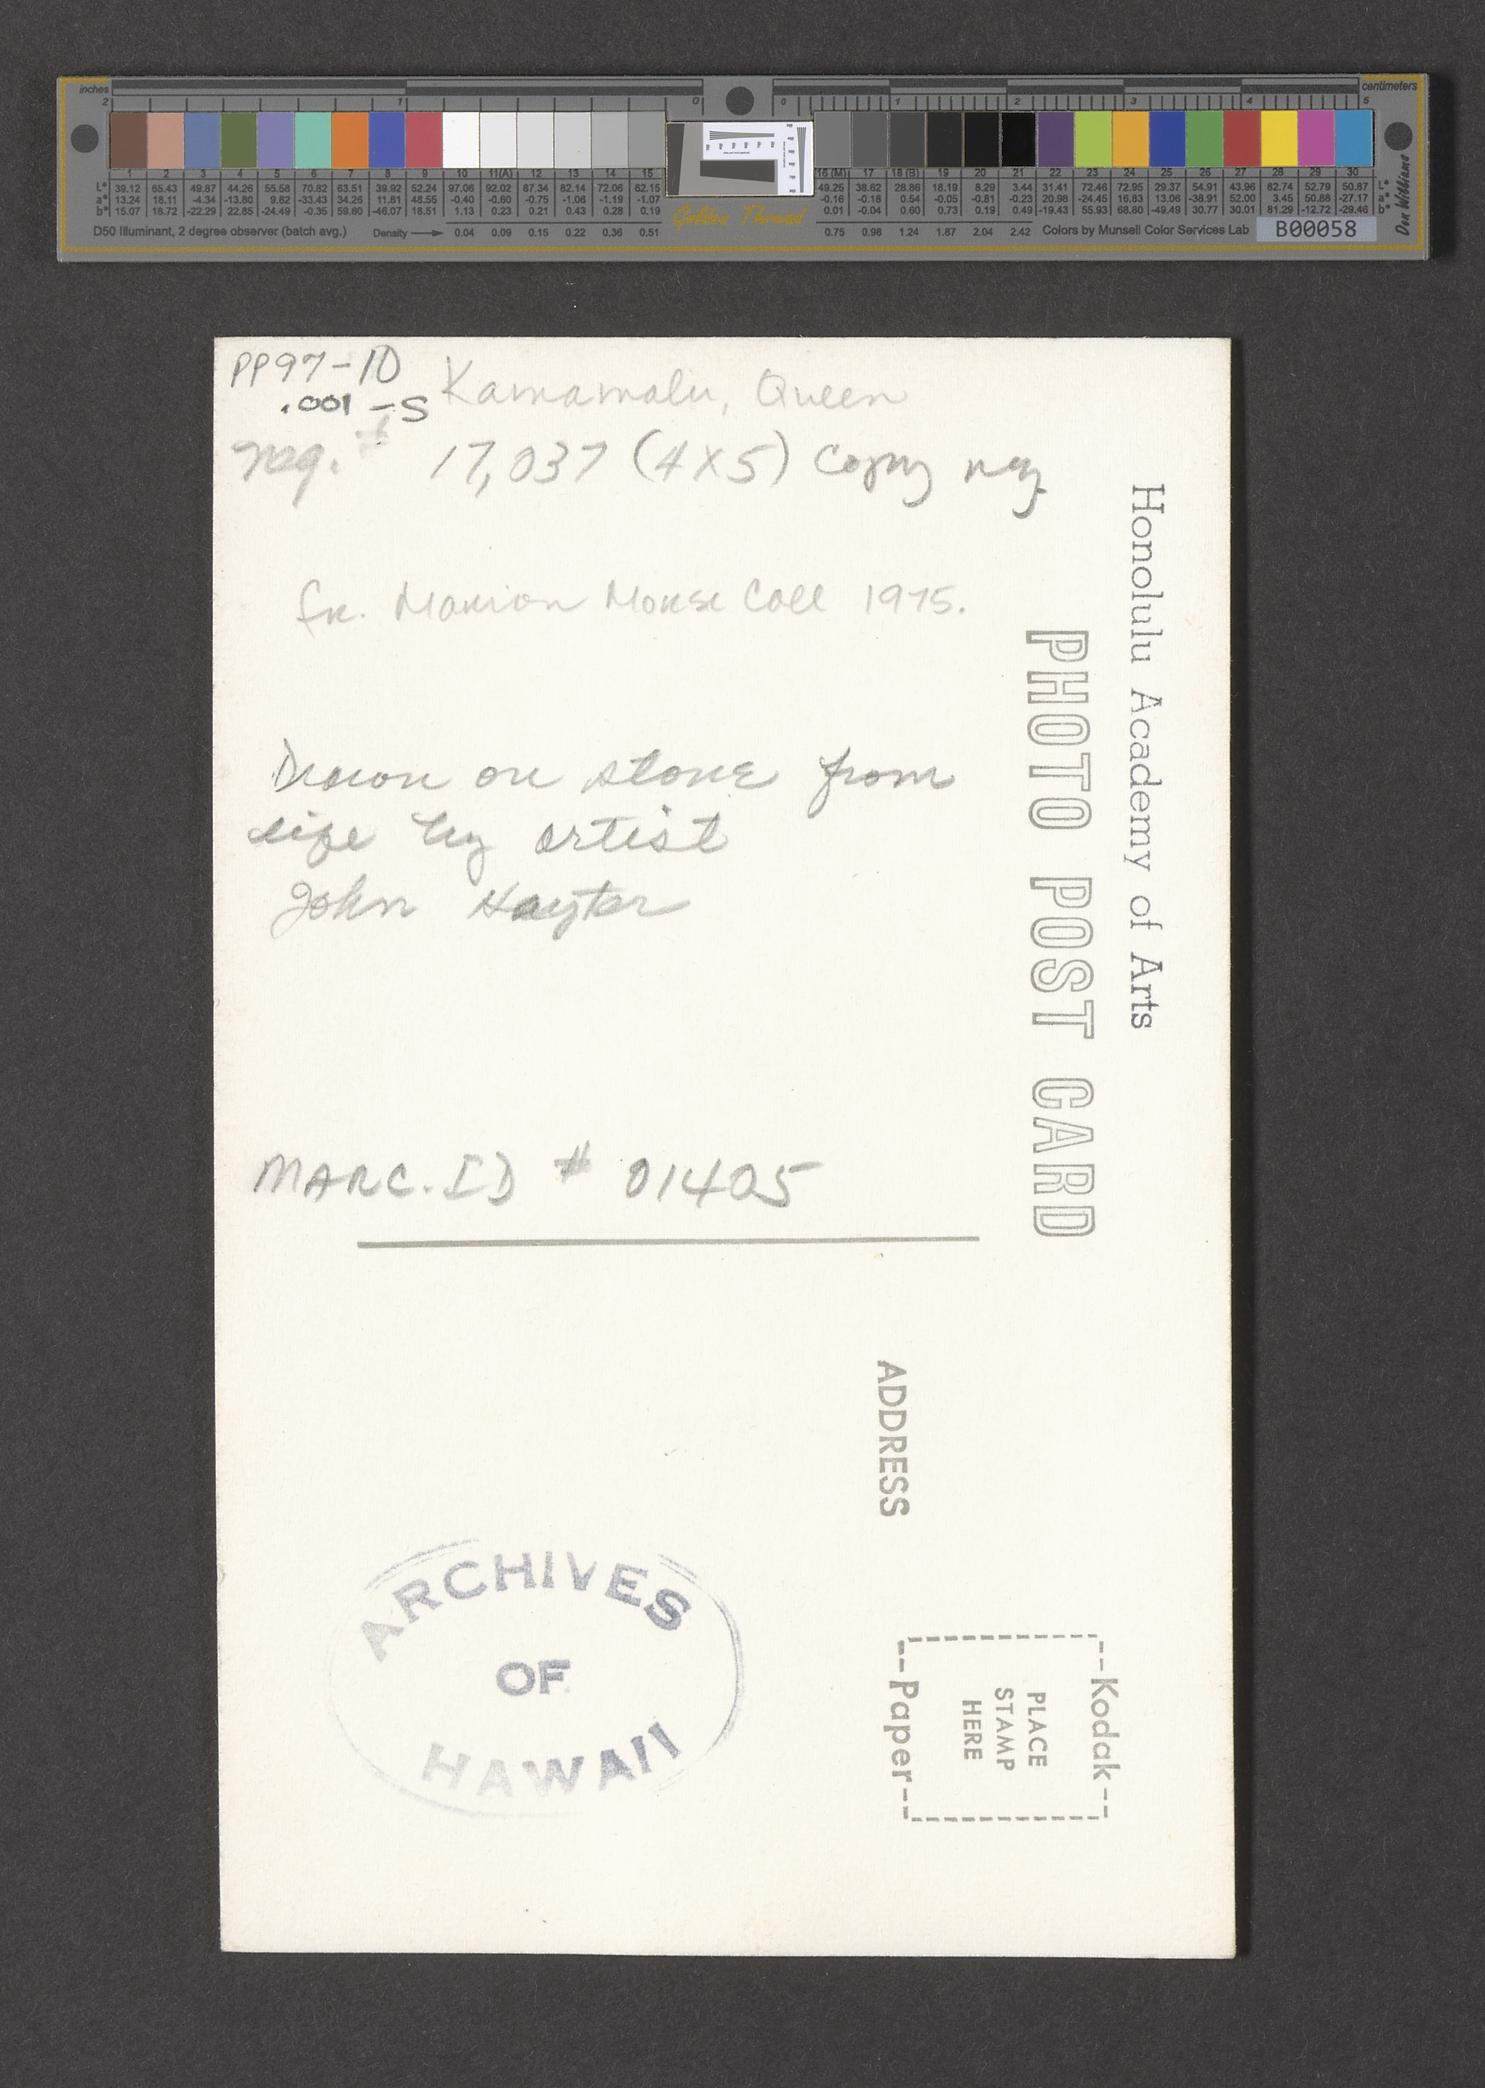 inches
centimeters
2 1 0 0 1 2 3 4 5
1 2 3 4 5 6 7 8 9 10 11(A) 12 13 14 15 16 (M) 17 18 (B) 19 20 21 22 23 24 25 26 27 28 29 30
L* 39.12 65.43 49.87 44.26 55.58 70.82 63.51 39.92 52.24 97.06 92.02 87.34 82.14 72.06 62.15 49.25 38.62 28.86 18.19 8.29 3.44 31.41 72.46 72.95 29.37 54.91 43.96 82.74 52.79 50.87 L*
a* 13.24 18.11 -4.34 -13.80 9.82 -33.43 34.26 11.81 48.55 -0.40 -0.60 -0.75 -1.06 -1.19 -1.07 -0.16 -0.18 0.54 -0.05 -0.81 -0.23 20.98 -24.45 16.83 13.06 -38.91 52.00 3.45 50.88 -27.17 a*
b* 15.07 18.72 -22.29 22.85 -24.49 -0.35 59.60 -46.07 18.51 1.13 0.23 0.21 0.43 0.28 0.19 0.01 -0.04 0.60 0.73 0.19 0.49 -19.43 55.93 68.80 -49.49 30.77 30.01 81.29 -12.72 -29.46 b*
D50 Illuminant, 2 degree observer (batch avg.) Density 0.04 0.09 0.15 0.22 0.36 0.51 0.75 0.98 1.24 1.87 2.04 2.42 Colors by Munsell Color Services Lab B00058
Golden Thread
Don Williams
PP97-10
.001-S
Kamamalu, Queen
neg. # 17,037 (4X5) copy neg
fr. Marion Morse Coll 1975.
Drawn on stone from
life by artist
John Hayter
MARC. ID # 01405
Honolulu Academy of Arts
PHOTO POST CARD
ADDRESS
--Kodak--
PLACE
STAMP
HERE
--Paper--
ARCHIVES
OF
HAWAII